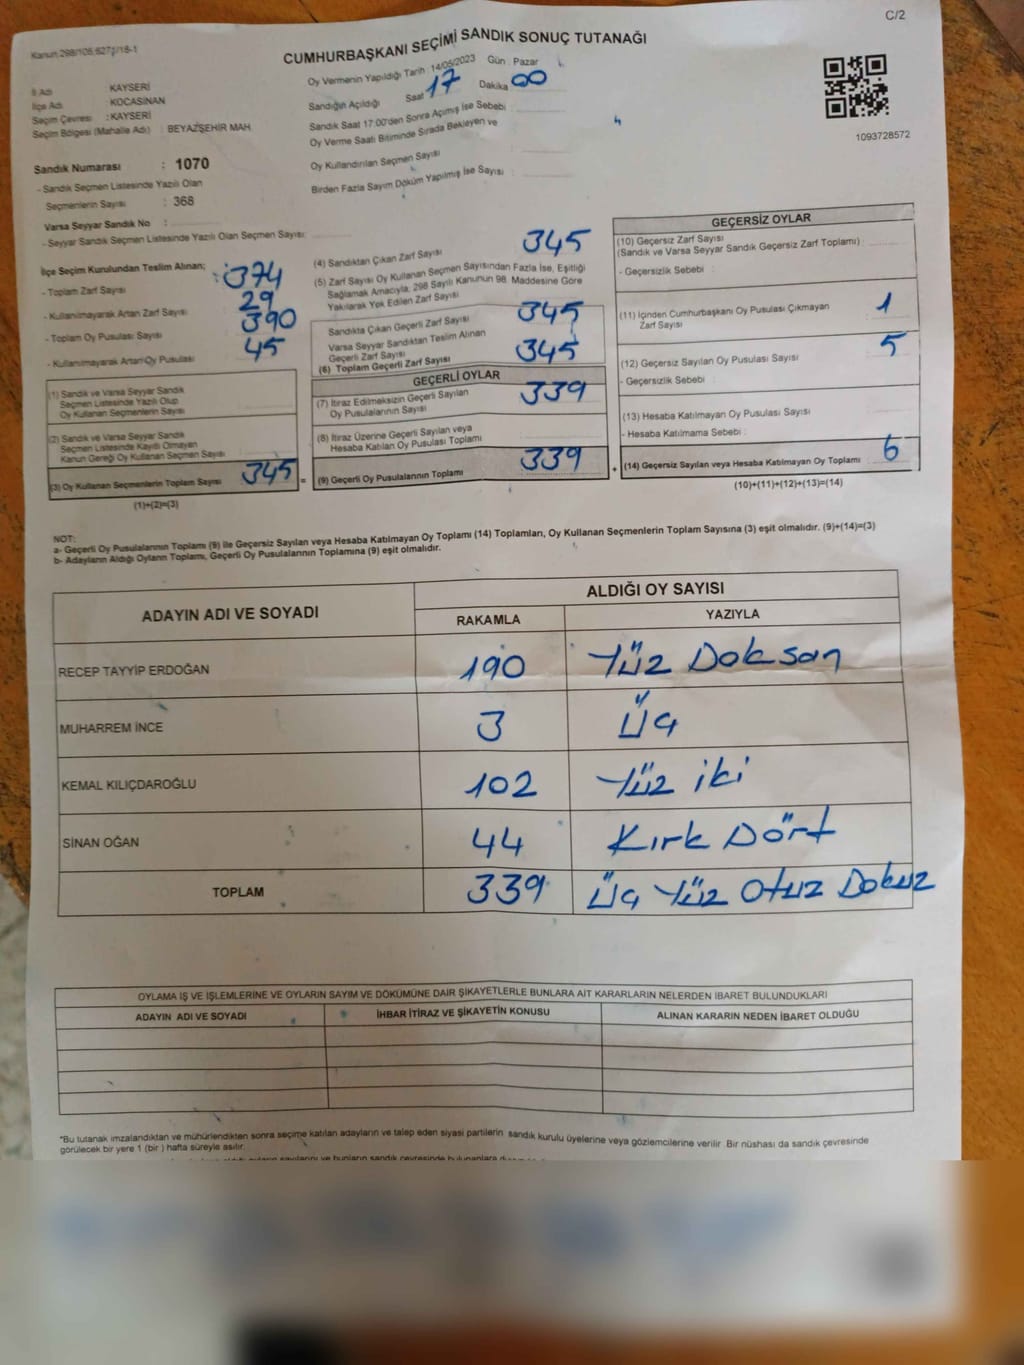 C/2
Kanun:298/105,6271/18-1
CUMHURBAŞKANI SEÇİMİ SANDIK SONUÇ TUTANAĞI
İl Adı : KAYSERİ
İlçe Adı : KOCASİNAN
Seçim Çevresi : KAYSERİ
Seçim Bölgesi (Mahalle Adı) : BEYAZŞEHİR MAH
Sandık Numarası : 1070
- Sandık Seçmen Listesinde Yazılı Olan
Seçmenlerin Sayısı : 368
Varsa Seyyar Sandık No :
- Seyyar Sandık Seçmen Listesinde Yazılı Olan Seçmen Sayısı:
Oy Vermenin Yapıldığı Tarih : 14/05/2023 Gün : Pazar
Sandığın Açıldığı Saat 17 Dakika 00
Sandık Saat 17:00'den Sonra Açımış İse Sebebi :
Oy Verme Saati Bitiminde Sırada Bekleyen ve
Oy Kullandırılan Seçmen Sayısı :
Birden Fazla Sayım Döküm Yapılmış İse Sayısı :
1093728572
İlçe Seçim Kurulundan Teslim Alınan;
- Toplam Zarf Sayısı : 374
- Kullanılmayarak Artan Zarf Sayısı : 29
- Toplam Oy Pusulası Sayısı : 390
- Kullanılmayarak Artan Oy Pusulası : 45
(1) Sandık ve Varsa Seyyar Sandık
Seçmen Listesinde Yazılı Olup
Oy Kullanan Seçmenlerin Sayısı :
(2) Sandık ve Varsa Seyyar Sandık
Seçmen Listesinde Kayıtlı Olmayan
Kanun Gereği Oy Kullanan Seçmen Sayısı :
(3) Oy Kullanan Seçmenlerin Toplam Sayısı 345 =
(1)+(2)=(3)
(4) Sandıktan Çıkan Zarf Sayısı 345
(5) Zarf Sayısı Oy Kullanan Seçmen Sayısından Fazla İse, Eşitliği
Sağlamak Amacıyla, 298 Sayılı Kanunun 98. Maddesine Göre
Yakılarak Yok Edilen Zarf Sayısı
Sandıkta Çıkan Geçerli Zarf Sayısı 345
Varsa Seyyar Sandıktan Teslim Alınan
Geçerli Zarf Sayısı
(6) Toplam Geçerli Zarf Sayısı 345
GEÇERLİ OYLAR
(7) İtiraz Edilmeksizin Geçerli Sayılan
Oy Pusulalarının Sayısı 339
(8) İtiraz Üzerine Geçerli Sayılan veya
Hesaba Katılan Oy Pusulası Toplamı
(9) Geçerli Oy Pusulalarının Toplamı 339 +
GEÇERSİZ OYLAR
(10) Geçersiz Zarf Sayısı
(Sandık ve Varsa Seyyar Sandık Geçersiz Zarf Toplamı) :
- Geçersizlik Sebebi :
(11) İçinden Cumhurbaşkanı Oy Pusulası Çıkmayan
Zarf Sayısı 1
(12) Geçersiz Sayılan Oy Pusulası Sayısı 5
- Geçersizlik Sebebi :
(13) Hesaba Katılmayan Oy Pusulası Sayısı
- Hesaba Katılmama Sebebi :
(14) Geçersiz Sayılan veya Hesaba Katılmayan Oy Toplamı 6
(10)+(11)+(12)+(13)=(14)
NOT:
a- Geçerli Oy Pusulalarının Toplamı (9) ile Geçersiz Sayılan veya Hesaba Katılmayan Oy Toplamı (14) Toplamları, Oy Kullanan Seçmenlerin Toplam Sayısına (3) eşit olmalıdır. (9)+(14)=(3)
b- Adayların Aldığı Oyların Toplamı, Geçerli Oy Pusulalarının Toplamına (9) eşit olmalıdır.
ADAYIN ADI VE SOYADI
ALDIĞI OY SAYISI
RAKAMLA YAZIYLA
RECEP TAYYİP ERDOĞAN 190 Yüz Doksan
MUHARREM İNCE 3 Üç
KEMAL KILIÇDAROĞLU 102 Yüz iki
SİNAN OĞAN 44 Kırk Dört
TOPLAM 339 Üç Yüz Otuz Dokuz
OYLAMA İŞ VE İŞLEMLERİNE VE OYLARIN SAYIM VE DÖKÜMÜNE DAİR ŞİKAYETLERLE BUNLARA AİT KARARLARIN NELERDEN İBARET BULUNDUKLARI
ADAYIN ADI VE SOYADI İHBAR İTİRAZ VE ŞİKAYETİN KONUSU ALINAN KARARIN NEDEN İBARET OLDUĞU
*Bu tutanak imzalandıktan ve mühürlendikten sonra seçime katılan adayların ve talep eden siyasi partilerin sandık kurulu üyelerine veya gözlemcilerine verilir. Bir nüshası da sandık çevresinde
görülecek bir yere 1 (bir) hafta süreyle asılır.